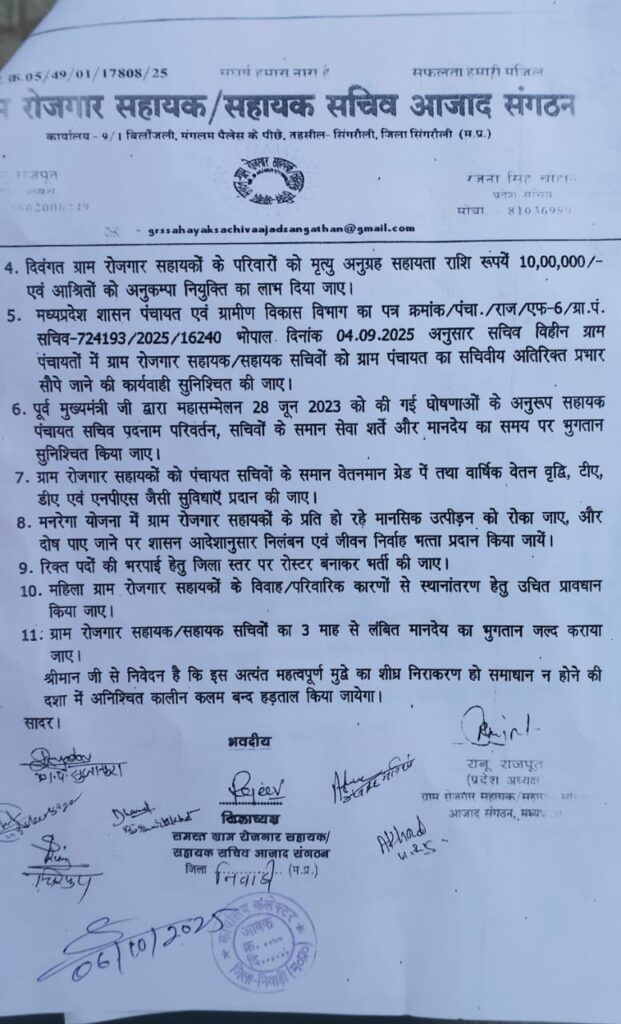 क्र.05/49/01/17808/25 संघर्ष हमारा नारा है सफलता हमारी मंजिल
रोजगार सहायक/सहायक सचिव आजाद संगठन
कार्यालय - 9/1 बिलौंजली, मंगलम पैलेस के पीछे, तहसील- सिंगरौली, जिला सिंगरौली (म.प्र.)
राजपूत रंजना सिंह
प्रदेश सचिव
मोबा - 81036999
grssahayaksachivaajadsangathan@gmail.com
4. दिवंगत ग्राम रोजगार सहायकों के परिवारों को मृत्यु अनुग्रह सहायता राशि रूपयें 10,00,000/-
एवं आश्रितों को अनुकम्पा नियुक्ति का लाभ दिया जाए।
5. मध्यप्रदेश शासन पंचायत एवं ग्रामीण विकास विभाग का पत्र क्रमांक/पंचा./राज/एफ-6/ग्रा.पं.
सचिव-724193/2025/16240 भोपाल दिनांक 04.09.2025 अनुसार सचिव विहीन ग्राम
पंचायतों में ग्राम रोजगार सहायक/सहायक सचिवों को ग्राम पंचायत का सचिवीय अतिरिक्त प्रभार
सौपे जाने की कार्यवाही सुनिश्चित की जाए।
6. पूर्व मुख्यमंत्री जी द्वारा महासम्मेलन 28 जून 2023 को की गई घोषणाओं के अनुरूप सहायक
पंचायत सचिव पदनाम परिवर्तन, सचिवों के समान सेवा शर्ते और मानदेय का समय पर भुगतान
सुनिश्चित किया जाए।
7. ग्राम रोजगार सहायकों को पंचायत सचिवों के समान वेतनमान ग्रेड पें तथा वार्षिक वेतन वृद्वि, टीए,
डीए एवं एनपीएस जैसी सुविधाऍ प्रदान की जाए।
8. मनरेगा योजना में ग्राम रोजगार सहायकों के प्रति हो रहे मानसिक उत्पीड़न को रोका जाए, और
दोष पाए जाने पर शासन आदेशानुसार निलंबन एवं जीवन निर्वाह भत्ता प्रदान किया जायें।
9. रिक्त पदों की भरपाई हेतु जिला स्तर पर रोस्टर बनाकर भर्ती की जाए।
10. महिला ग्राम रोजगार सहायकों के विवाह/परिवारिक कारणों से स्थानांतरण हेतु उचित प्रावधान
किया जाए।
11: ग्राम रोजगार सहायक/सहायक सचिवों का 3 माह से लंबित मानदेय का भुगतान जल्द कराया
जाए।
श्रीमान जी से निवेदन है कि इस अत्यंत महत्वपूर्ण मुद्वे का शीघ्र निराकरण हो समाधान न होने की
दशा में अनिश्चित कालीन कलम बन्द हड़ताल किया जायेगा।
सादर।
भवदीय
Rajeev
रानू राजपूत
(प्रदेश अध्यक्ष
जिलाध्यक्ष
ग्राम रोजगार सहायक/सहाय
समस्त ग्राम रोजगार सहायक/
आजाद संगठन, मध्य
सहायक सचिव आजाद संगठन
जिला निवाड़ी (म.प्र.)
06/10/2025
कार्यालय कलेक्टर
आवक
क्र. ....
दि.......
जिला-निवाड़ी (म.प्र.)